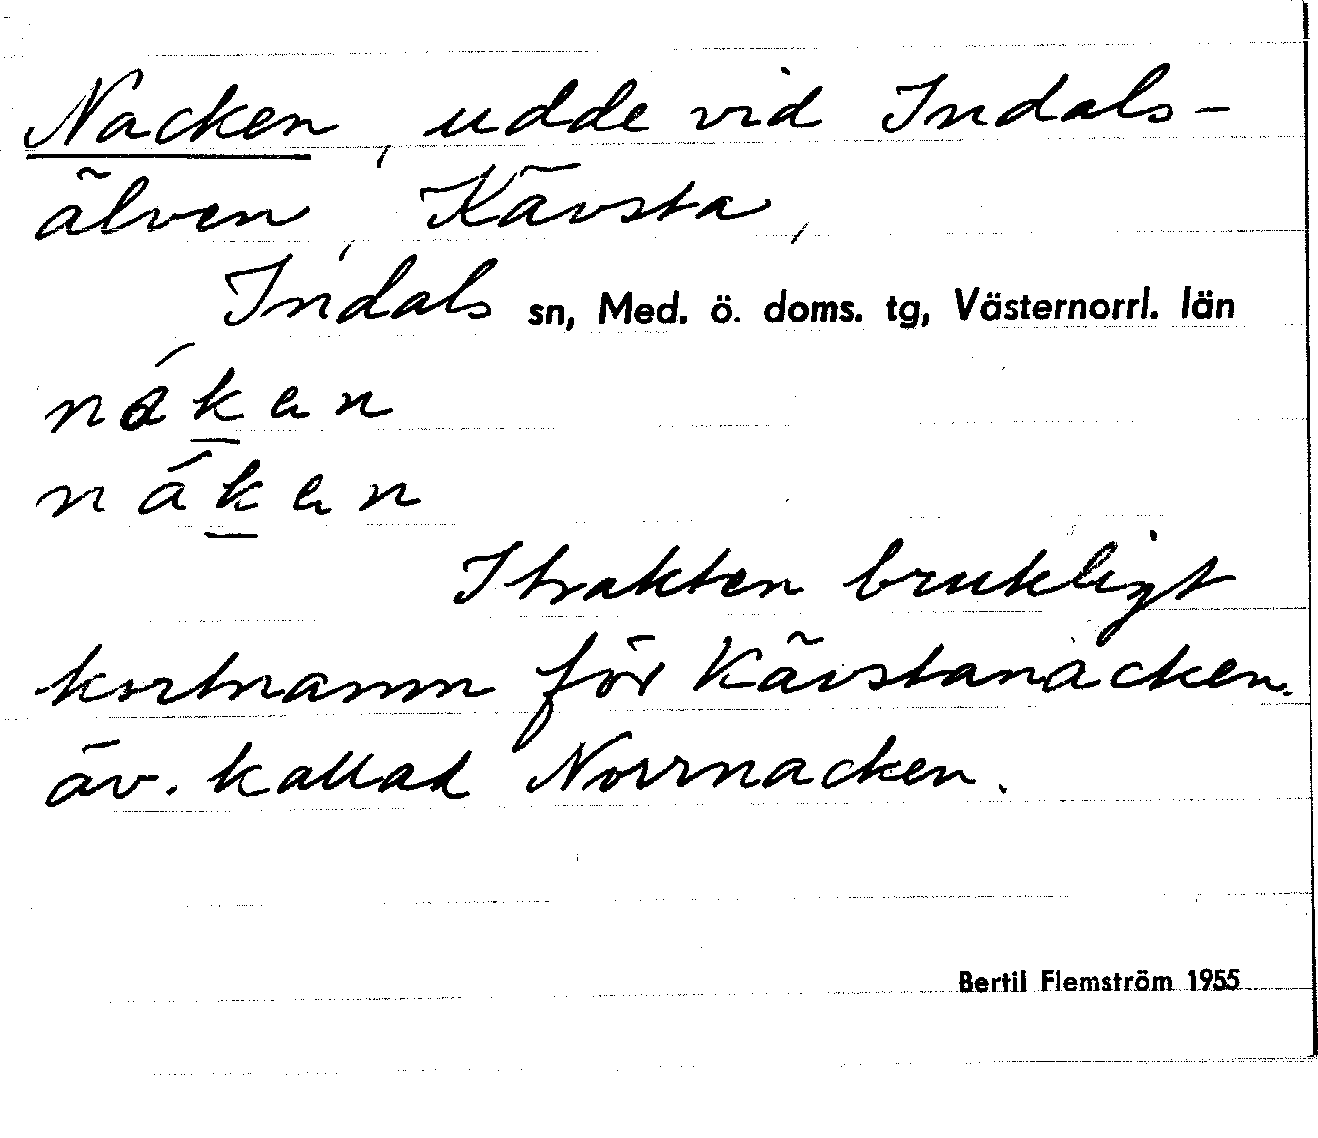 Nacken, udde vid Indals-
älven, Kävsta,
Indals sn, Med. ö. doms. tg, Västernorrl. län
náken
náken
I trakten brukligt
kortnamn för Kävstanacken.
äv. kallad Norrnacken.
Bertil Flemström 1955